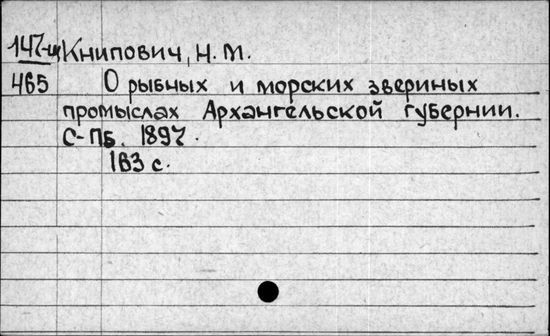 147-ц Книпович, Н. М.
465 О рыбных и морских звериных
промыслах Архангельской губернии.
С-ПБ. 1897.
163 с.